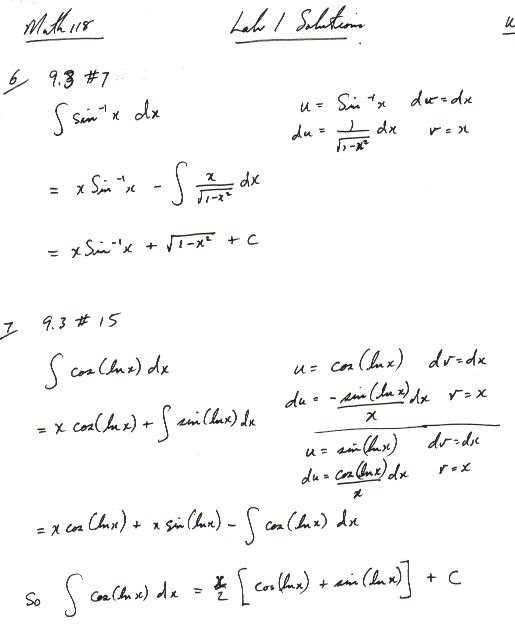 Math 118 Lab 1 Solutions u
6 9.3 #7
∫ sin⁻¹x dx u = Sin⁻¹x dv = dx
du = 1/√(1-x²) dx v = x
= x Sin⁻¹x - ∫ x/√(1-x²) dx
= x Sin⁻¹x + √(1-x²) + C
7 9.3 # 15
∫ cos(ln x) dx u = cos(ln x) dv = dx
du = - sin(ln x)/x dx v = x
= x cos(ln x) + ∫ sin(ln x) dx
u = sin(ln x) dv = dx
du = cos(ln x)/x dx v = x
= x cos(ln x) + x sin(ln x) - ∫ cos(ln x) dx
So ∫ cos(ln x) dx = x/2 [cos(ln x) + sin(ln x)] + C